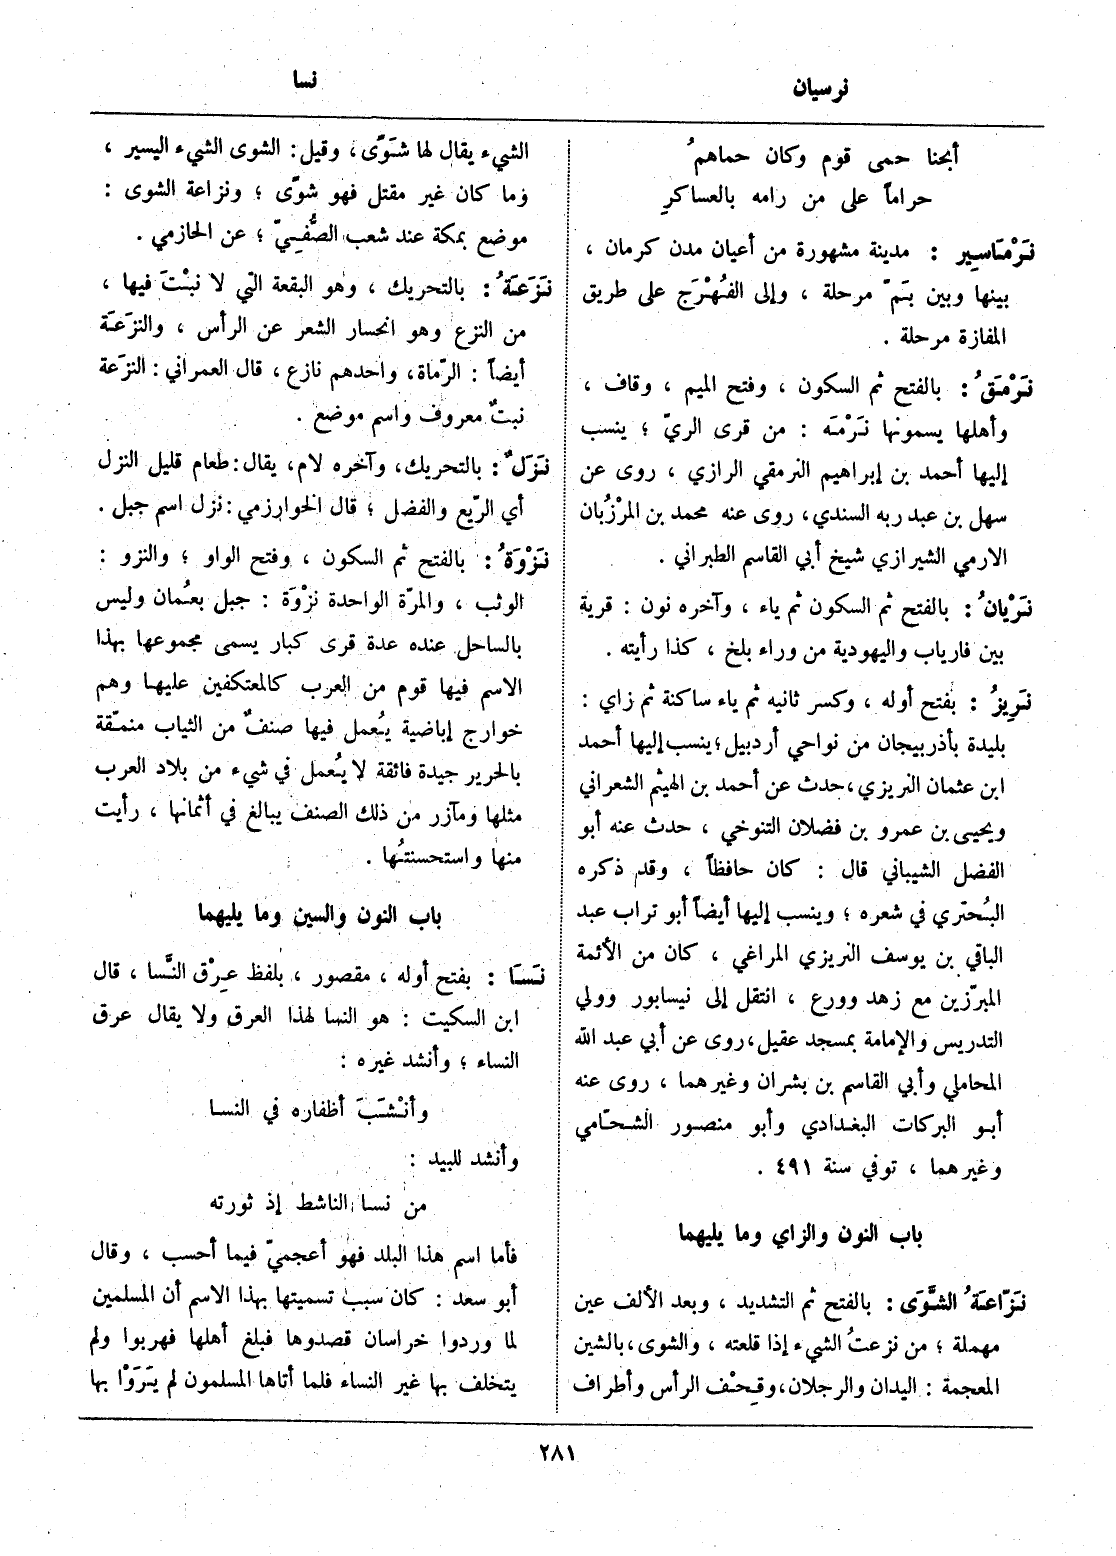 نرسيان
نسا
أبحنا حمى قوم وكان حماهمُ
حراماً على من رامه بالعساكرِ
نَرْمَاسِير : مدينة مشهورة من أعيان مدن كرمان ،
بينها وبين بَمّ مرحلة ، وإلى الفُهْرَج على طريق
المفازة مرحلة .
نَرْمَقُ : بالفتح ثم السكون ، وفتح الميم ، وقاف ،
وأهلها يسمونها نَرْمَه : من قرى الريّ ؛ ينسب
إليها أحمد بن إبراهيم النرمقي الرازي ، روى عن
سهل بن عبد ربه السندي، روى عنه محمد بن المرْزُبان
الارمي الشيرازي شيخ أبي القاسم الطبراني .
نَرْيانُ : بالفتح ثم السكون ثم ياء ، وآخره نون : قرية
بين فارياب واليهودية من وراء بلخ ، كذا رأيته .
نَرِيزُ : بفتح أوله ، وكسر ثانيه ثم ياء ساكنة ثم زاي :
بليدة بأذربيجان من نواحي أردبيل ؛ ينسب إليها أحمد
ابن عثمان النريزي، حدث عن أحمد بن الهيثم الشعراني
ويحيى بن عمرو بن فضلان التنوخي ، حدث عنه أبو
الفضل الشيباني قال : كان حافظاً ، وقد ذكره
البُحتري في شعره ؛ وينسب إليها أيضاً أبو تراب عبد
الباقي بن يوسف النريزي المراغي ، كان من الأئمة
المبرّزين مع زهد وورع ، انتقل إلى نيسابور وولي
التدريس والإمامة بمسجد عقيل، روى عن أبي عبد الله
المحاملي وأبي القاسم بن بشران وغيرهما ، روى عنه
أبو البركات البغدادي وأبو منصور الشحّامي
وغيرهما ، توفي سنة ٤٩١ .
باب النون والزاي وما يليهما
نَزّاعَةُ الشَّوَى : بالفتح ثم التشديد ، وبعد الألف عين
مهملة ؛ من نزعتُ الشيء إذا قلعته ، والشوى، بالشين
المعجمة : اليدان والرجلان، وقِحْف الرأس وأطراف
الشيء يقال لها شَوًى ، وقيل : الشوى الشيء اليسير ،
وما كان غير مقتل فهو شوًى ؛ ونزاعة الشوى :
موضع بمكة عند شعب الصُّفيّ ؛ عن الحازمي .
نَزَعَةُ : بالتحريك ، وهو البقعة التي لا نبْتَ فيها ،
من النزع وهو انحسار الشعر عن الرأس ، والنزَعَة
أيضاً : الرّماة، واحدهم نازع ، قال العمراني : النزَعة
نبتٌ معروف واسم موضع .
نَزَلٌ : بالتحريك، وآخره لام، يقال: طعام قليل النزل
أي الرّيع والفضل ؛ قال الخوارزمي : نزل اسم جبل .
نَزْوَةُ : بالفتح ثم السكون ، وفتح الواو ؛ والنزو :
الوثب ، والمرّة الواحدة نزْوَة : جبل بعُمان وليس
بالساحل عنده عدة قرى كبار يسمى مجموعها بهذا
الاسم فيها قوم من العرب كالمعتكفين عليها وهم
خوارج إباضية يُعمل فيها صنفٌ من الثياب منمّقة
بالحرير جيدة فائقة لا يُعمل في شيء من بلاد العرب
مثلها ومآزر من ذلك الصنف يبالغ في أثمانها ، رأيت
منها واستحسنتُها .
باب النون والسين وما يليهما
نَسَا : بفتح أوله ، مقصور ، بلفظ عِرْق النَّسا ، قال
ابن السكيت : هو النسا لهذا العرق ولا يقال عرق
النساء ؛ وأنشد غيره :
وأنْشَبَ أظفاره في النسا
وأنشد للبيد :
من نسا الناشط إذ ثورته
فأما اسم هذا البلد فهو أعجميّ فيما أحسب ، وقال
أبو سعد : كان سبب تسميتها بهذا الاسم أن المسلمين
لما وردوا خراسان قصدوها فبلغ أهلها فهربوا ولم
يتخلف بها غير النساء فلما أتاها المسلمون لم يَرَوْا بها
٢٨١